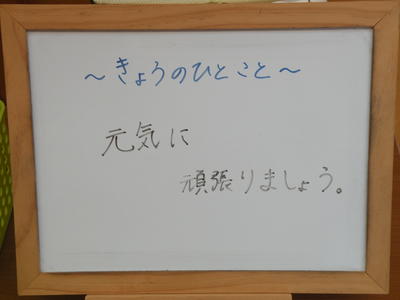 ～きょうのひとこと～
元気に
頑張りましょう。